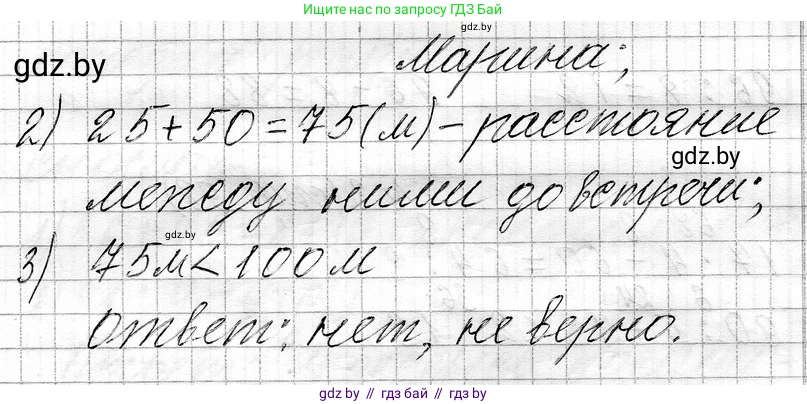 Ищите нас по запросу ГДЗ Бай
gdz.by
gdz.by
Марина;
2) 25+50=75(м) – расстояние
gdz.by
между ними до встречи;
gdz.by
3) 75м < 100м
Ответ: нет, не верно.
gdz.by // гдз бай // gdz.by